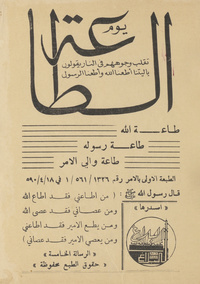 يوم
الطاعة
تقلب وجوههم في النار يقولون
ياليتنا أطعنا الله وأطعنا الرسول
طاعــة الله
طاعــة رسوله
طاعة والى الامر
الطبعة الاولى بالامر رقم ١٣٢٦ / ٥٦١ / ١ في ٥٩٠/٤/١٨
قال رسول الله
( من أطاعني فقد اطاع الله
ومن عصاني فقد عصى الله
ومن يطع الامير فقد اطاعني
ومن يعصي الامير فقد عصاني )
« اصدرها »
( الرسالة الخامسة )
« حقوق الطبع محفوظة »